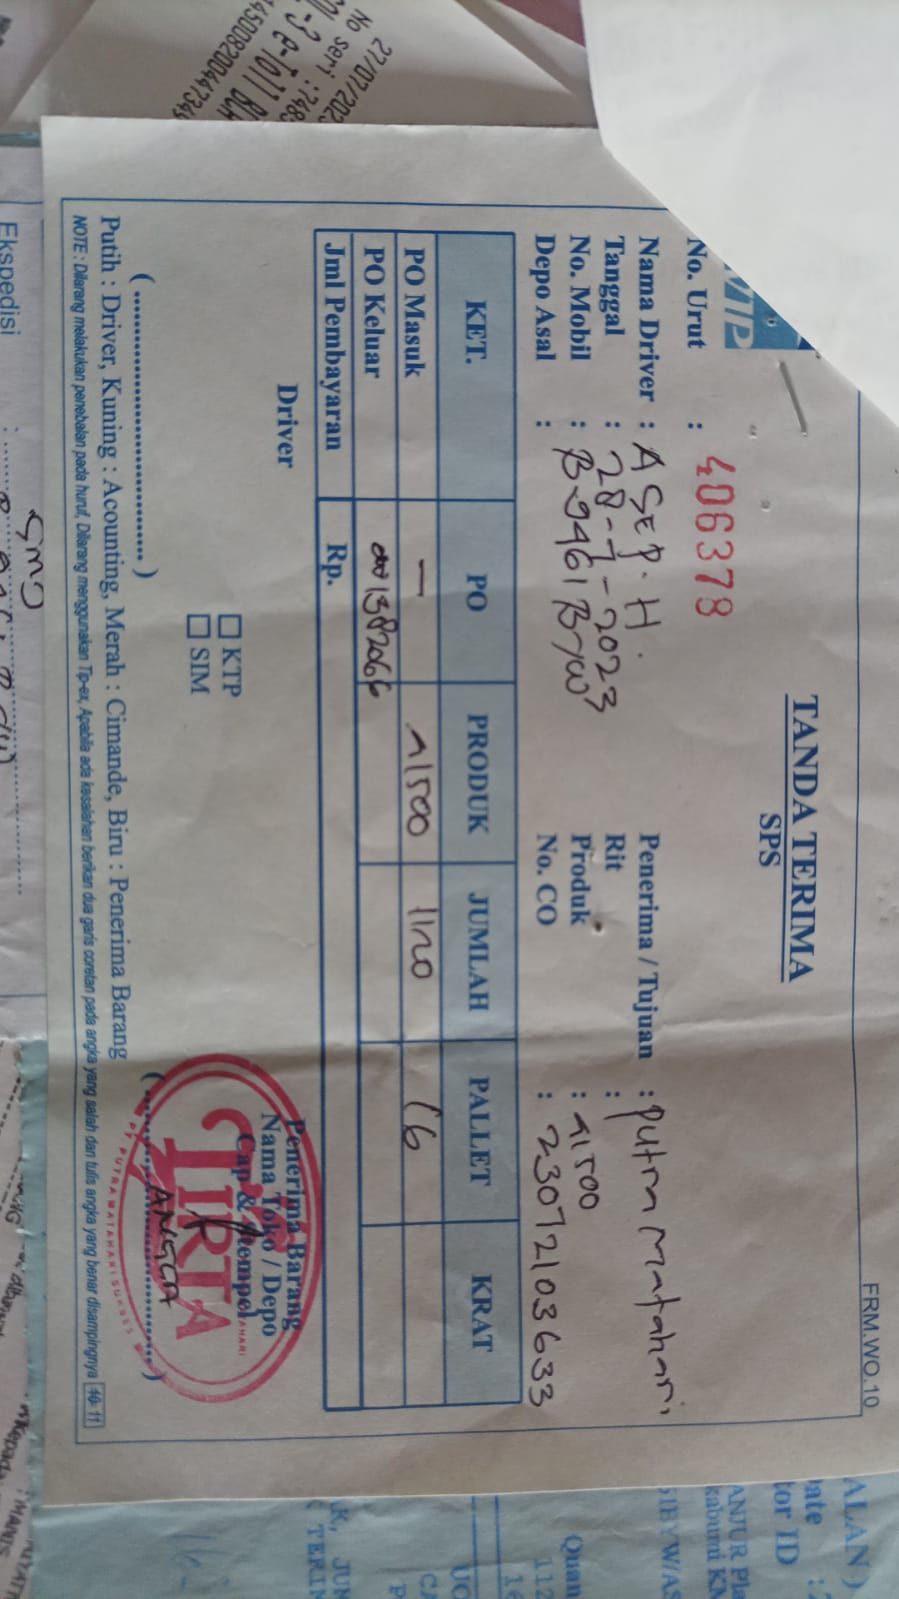 FRM.WO.10
TANDA TERIMA
SPS
VIP
No. Urut : 406378
Nama Driver : ASEP. H.
Tanggal : 28-7-2023
No. Mobil : B 9461 BYW
Depo Asal :
Penerima / Tujuan : Putra Matahari
Rit :
Produk : A1500
No. CO : 23072103633
KET. PO PRODUK JUMLAH PALLET KRAT
PO Masuk — A1500 1120 16
PO Keluar 1382066
Jml Pembayaran Rp.
Driver
Penerima Barang
Nama Toko / Depo
Cap & Stempel
TIRTA
KTP
SIM
ANGGA
PT PUTRA MATAHARI SUKSES
( ................................ )
Putih : Driver, Kuning : Acounting, Merah : Cimande, Biru : Penerima Barang
NOTE : Dilarang melakukan penebalan pada huruf, Dilarang menggunakan Tip-ex, Apabila ada kesalahan berikan dua garis coretan pada angka yang salah dan tulis angka yang benar disampingnya 10- 11
ALAN )
ate :
tor ID
ANJUR Pla
kabumi KM
Quan
112
16
UO
TERIM
27/07/2023
No seri :7485
OL-3 e-Toll BCA
145008200447349
SMS
Ekspedisi :
: MANIS